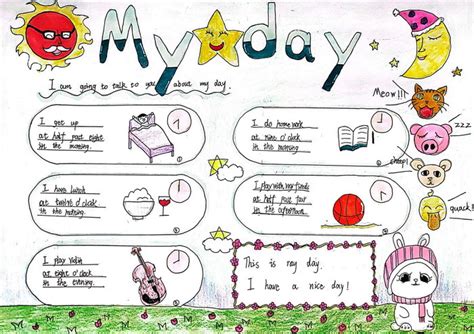 My day
I am going to talk to you about my day.
Meow!!!
I get up
at half past eight
in the morning.
I do homework
at nine o'clock
in the morning.
zzz...
cheep!
I have lunch
at twelve o'clock
in the morning.
I play with my friends
at half past four
in the afternoon.
quack!!
I play violin
at eight o'clock
in the evening.
This is my day.
I have a nice day!